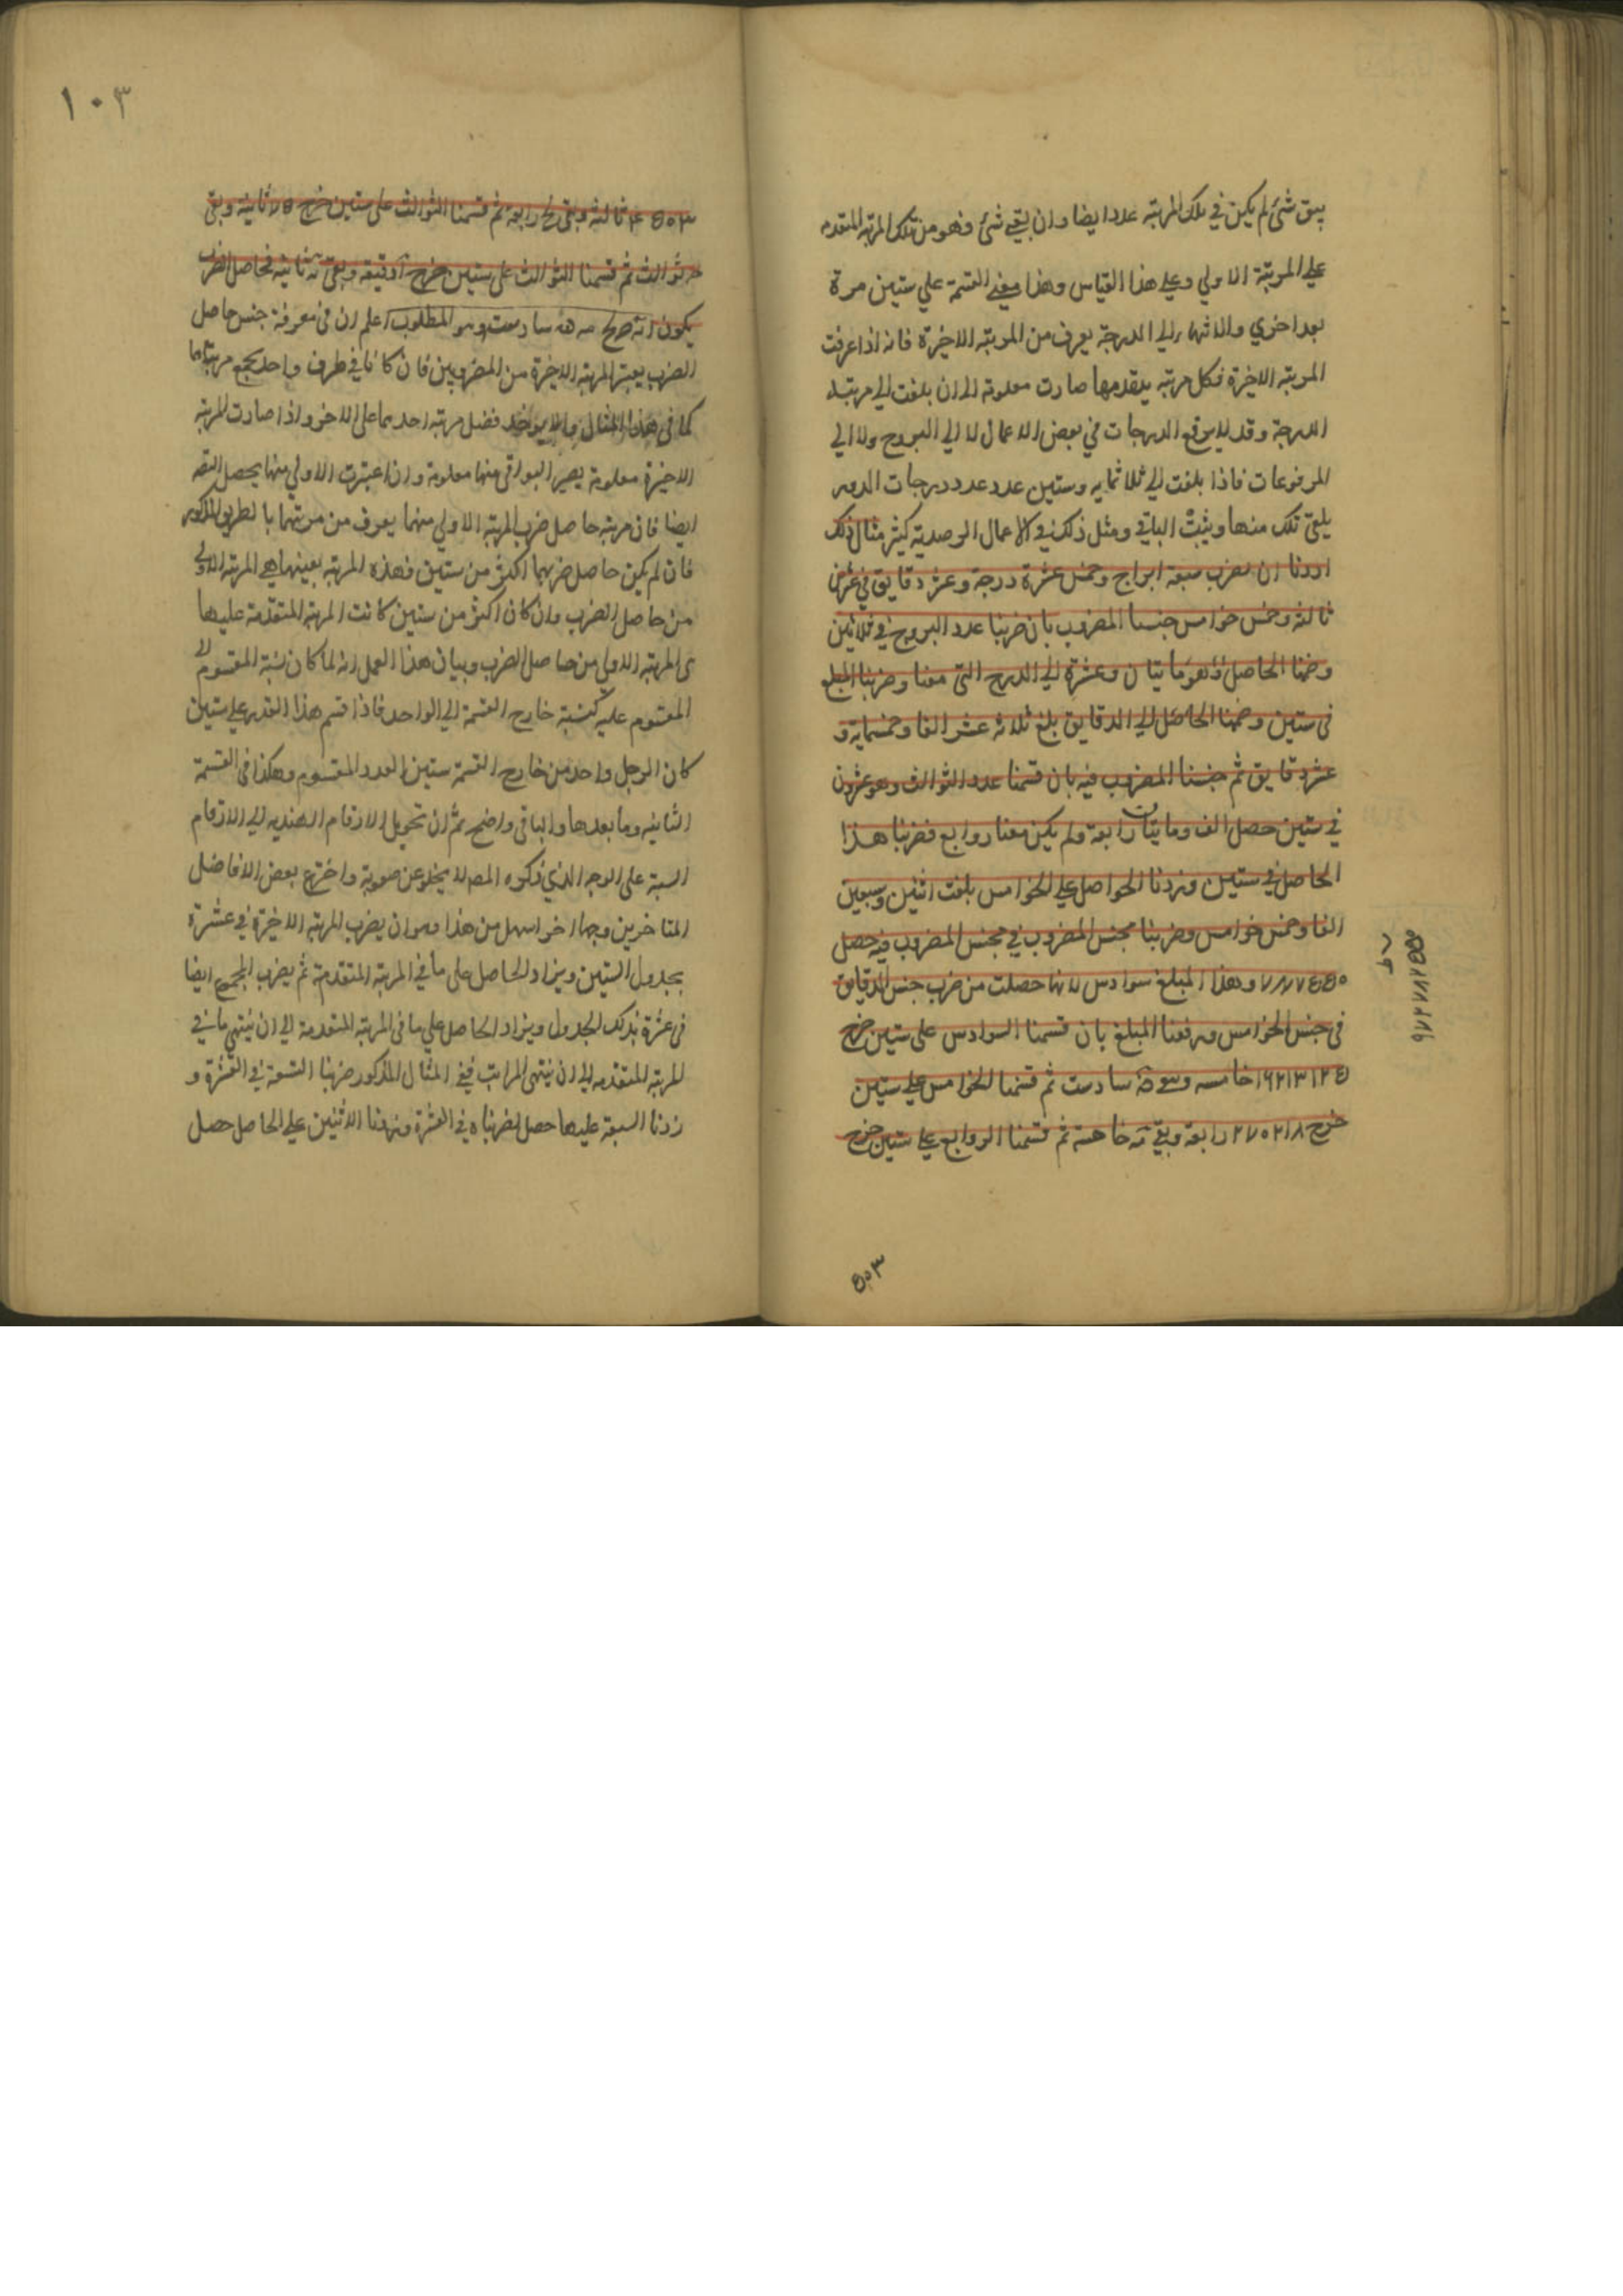 يبق شئ لم يكن في تلك المرتبة عدد ايضا وان بقي شئ فهو من تلك المرتبة المتقدمه
علي المرتبة الاولي وعلي هذا القياس وهذا معني القسمة علي ستين مرة
بعد اخري والانتهاء الي الدرجة يعرف من المرتبه الاخيرة فانه اذا عرفت
المرتبه الاخيرة فكل مرتبه يتقدمها صارت معلومة الي ان بلغت الي مرتبة
الدرجة وقد لا يرفع الدرجات في بعض الاعمال لا الي البروج ولا الي
المرفوعات فاذا بلغت الي ثلاثمايه وستين عدد عدد درجات الدور
يلقي تلك منها ويثبت الباقي ومثل ذلك في الاعمال الرصدية كثير مثال ذلك
اردنا ان نضرب سبعة ابراج وخمس عشرة درجة وعشر دقايق في عشرين
ثالثه وخمس خوامس جنسنا المضروب بان ضربنا عدد البروج في ثلاثين
وضمنا الحاصل وهو مايتان وعشرة الي الدرج التي معنا وضربنا المبلغ
في ستين وضمنا الحاصل الي الدقايق بلغ ثلاثه عشر الفا وخمسماية و
عشر دقايق ثم جنسنا المضروب فيه بان قسمنا عدد الثوالث وهو عشرون
في ستين حصل الف ومايتان رابعة ولم يكن معنا روابع فضربنا هذا
الحاصل في ستين وزدنا الحواصل علي الخوامس بلغت اثنين وسبعين
الفا وخمس خوامس وضربنا مجنس المضروب في مجنس المضروب فيه حصل
وهذا المبلغ سوادس لانها حصلت من ضرب جنس الدقايق
في جنس الخوامس ورفعنا المبلغ بان قسمنا السوادس علي ستين خرج
خامسه وبقي سادسة ثم قسمنا الخوامس علي ستين
خرج ٢٧٠٢١٨ رابعة وبقي خامسة ثم قسمنا الروابع علي ستين خرج
٤٥٠٣
١٠٣
٤٥٠٣ ثالثه وبقي لح رابعة ثم قسمنا الثوالث علي ستين خرج ٧٥ ثانية وبقي
ثوالث ثم قسمنا الثوالث علي ستين خرج دقيقه وبقي ثانية فحاصل الضرب
يكون سادسة وهو المطلوب اعلم ان في معرفة جنس حاصل
الضرب يعتبر المرتبه الاخيرة من المضروبين فان كانا في طرف واحد يجمع مرتبتاهما
كما في هذا المثال والا يوخذ فضل مرتبة احدهما علي الاخر واذا صارت المرتبه
الاخيرة معلومة يصير البواقي منها معلومة وان اعتبرت الاولي منها يحصل
ايضا فان مرتبه حاصل ضرب المرتبه الاولي منهما يعرف من مرتبتهما بالطريق المذكور
فان لم يكن حاصل ضربهما اكثر من ستين فهذه المرتبه بعينها هي المرتبه الاولي
من حاصل الضرب وان كان اكثر من ستين كانت المرتبه المتقدمة عليها
هي المرتبه الاولي من حاصل الضرب وبيان هذا العمل انه لما كان نسبة المقسوم الي
المقسوم عليه كنسبة خارج القسمة الي الواحد فاذا قسم هذا القدر علي ستين
كان لاجل واحد من خارج القسمة ستين العدد المقسوم وهكذا في القسمة
الثانيه وما بعدها والباقي واضح ثم ان تحويل الارقام الهنديه الي الارقام
الستة علي الوجه الذي ذكره المص لا يخلو عن صعوبة واخترع بعض الافاضل
المتاخرين وجها اخر اسهل من هذا وهو ان يضرب المرتبه الاخيرة في عشرة
بجدول الستين ويزاد الحاصل علي ما في المرتبة المتقدمة ثم يضرب المجموع ايضا
في عشرة بذلك الجدول ويزاد الحاصل علي ما في المرتبه المتقدمة الي ان ينتهي ما في
المرتبه المتقدمه الي ان ينتهي المراتب ففي المثال المذكور ضربنا التسعة في العشرة و
زدنا السبعة عليها حصل لضربناه في العشرة وزدنا الاثنين علي الحاصل حصل